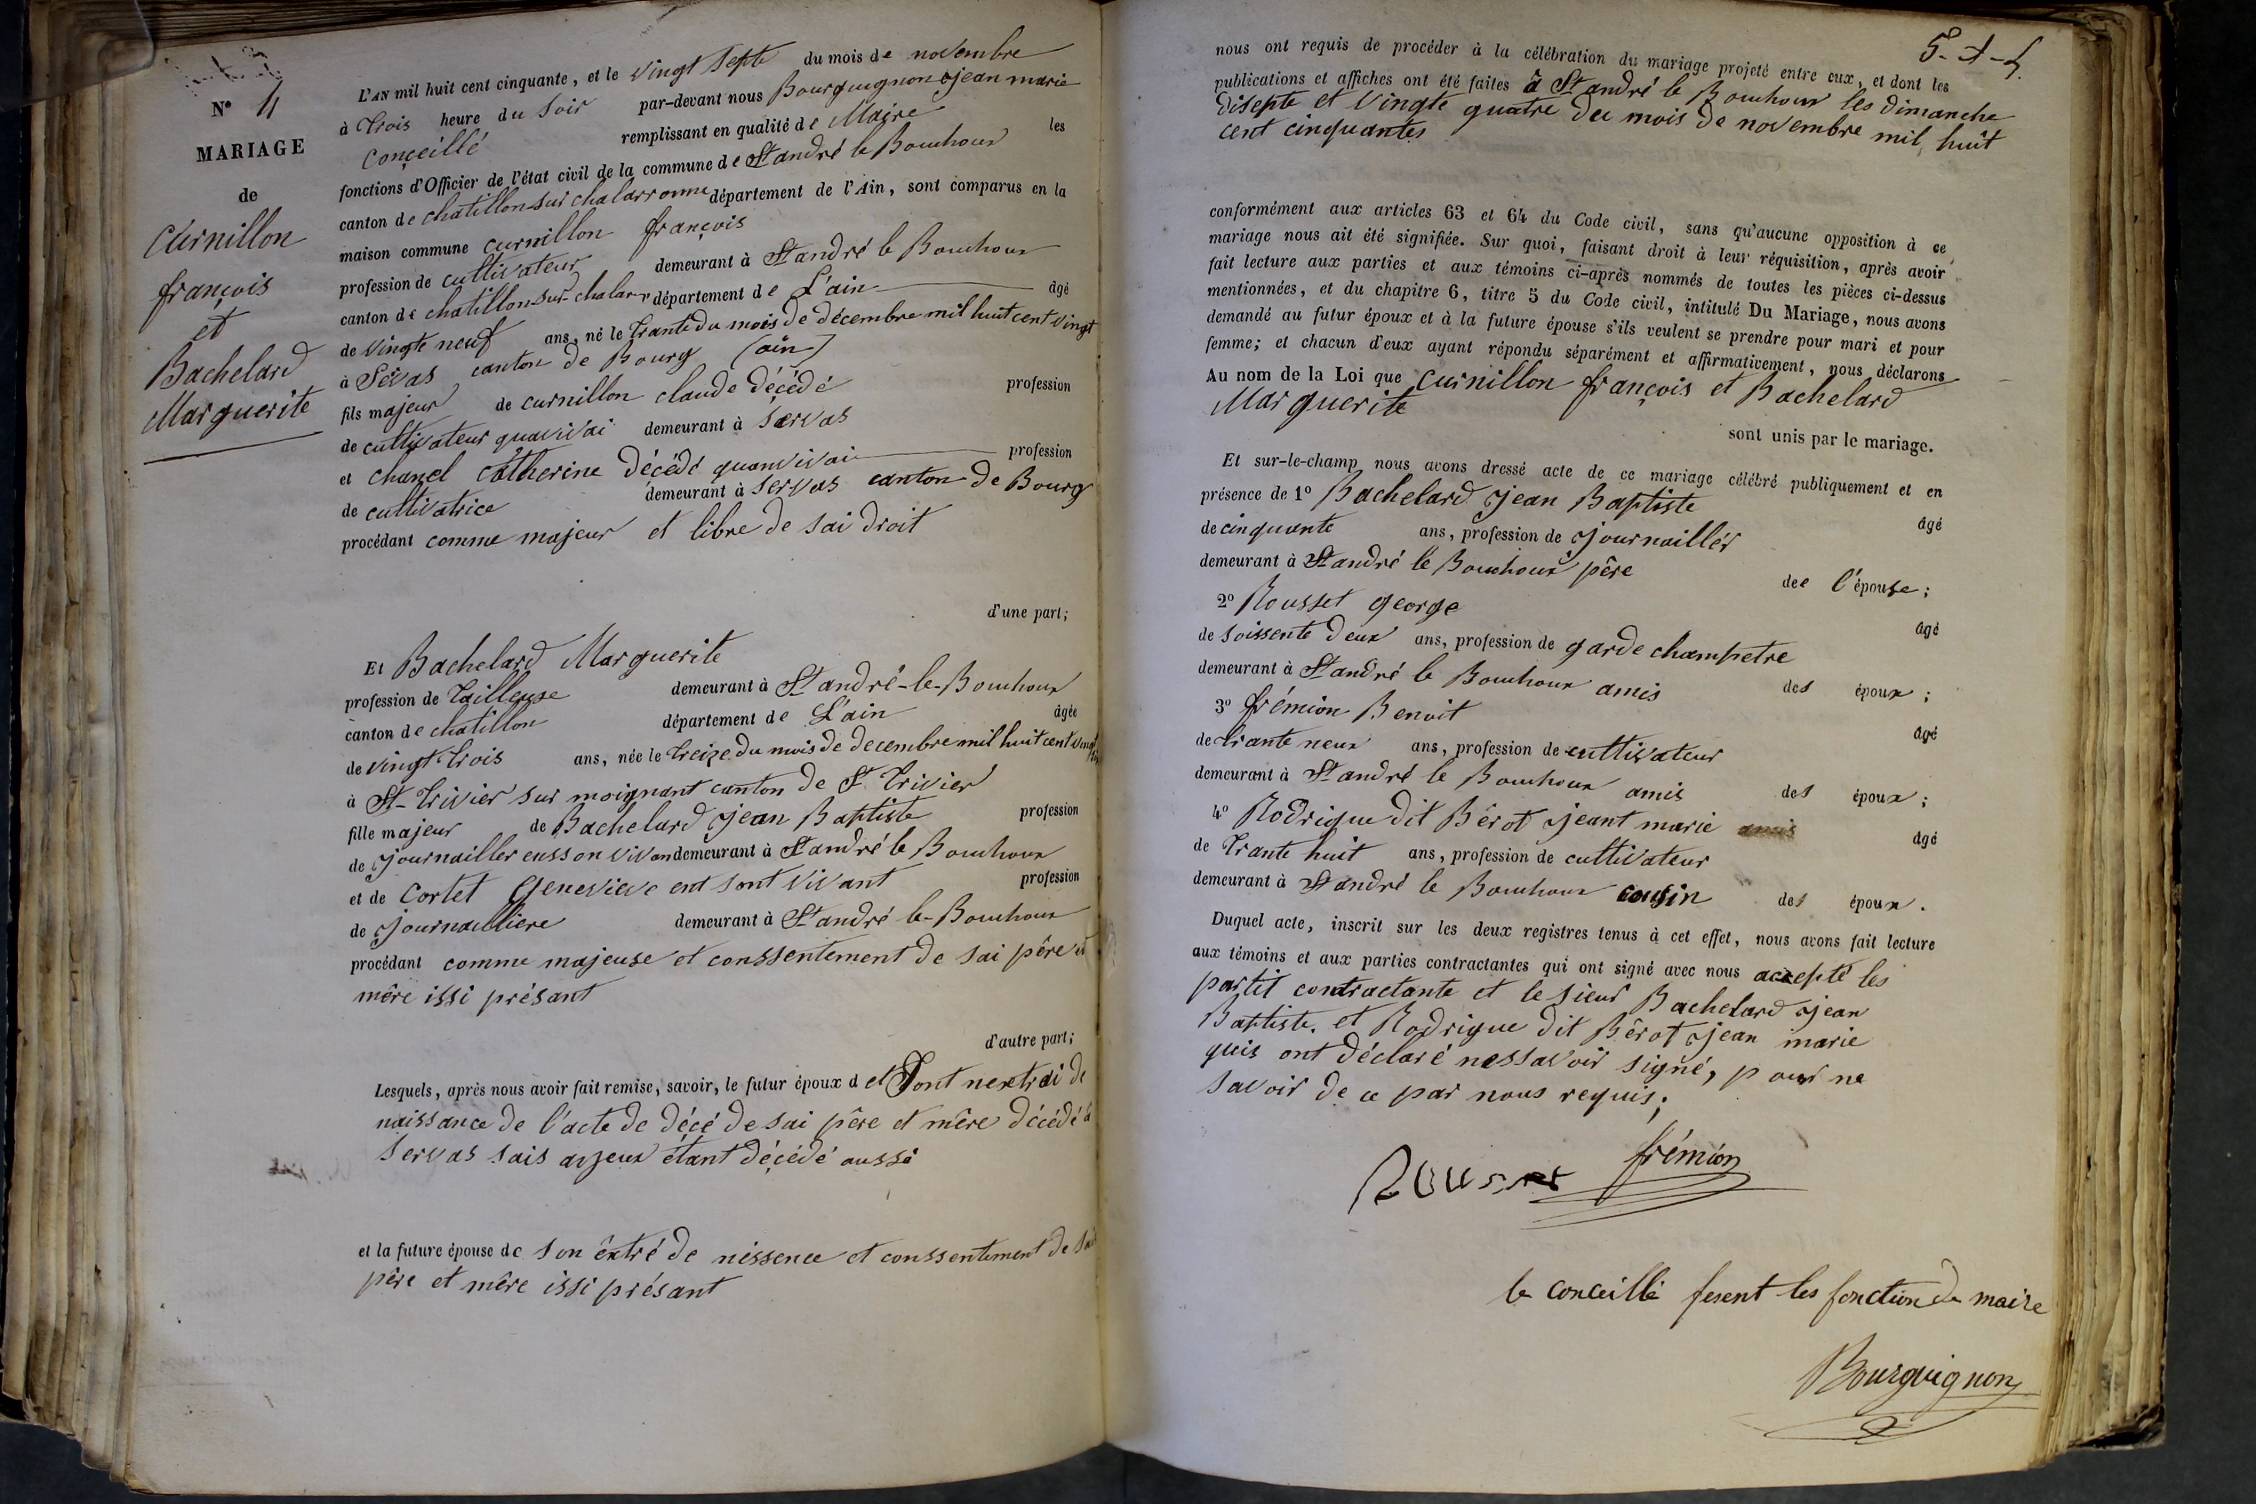 N° 4
MARIAGE
de
Curnillon
françois
et
Bachelard
Marguerite
L'AN mil huit cent cinquante, et le vingt septe du mois de novembre
à trois heure du soir par-devant nous Bourguignon jean marie
conçeillé remplissant en qualité de Maire les
fonctions d'Officier de l'état civil de la commune de St andré le Bouchoux
canton de chatillon sur chalaronne département de l'Ain, sont comparus en la
maison commune curnillon françois
profession de cultivateur demeurant à St andré le Bouchoux
canton de chatillon sur chalar département de L'ain âgé
de vingte neuf ans, né le trante du mois de décembre mil huit cent vingt
à Sèvas canton de Bourg (ain)
fils majeur de curnillon claude décédé profession
de cultivateur quavivai demeurant à servas
et chanel catherine décédé quanvivai profession
de cultivatrice demeurant à servas canton de Bourg
procédant comme majeur et libre de sai droit
d'une part;
Et Bachelard Marguerite
profession de tailleuse demeurant à St andré-le-Bouchoux
canton de chatillon département de L'ain âgée
de vingt trois ans, née le treize du mois de decembre mil huit cent vingt
à St-trivier sur moignant canton de St trivier
fille majeur de Bachelard jean Baptiste profession
de journailler enssonvivan demeurant à St andré le Bouchoux
et de Cortet Genevieve ent sont vivant profession
de journailliere demeurant à St andré le-Bouchoux
procédant comme majeuse et conssentement de sai père et
mère issi présant
d'autre part;
Lesquels, après nous avoir fait remise, savoir, le futur époux d et Sont nextrai de
naissance de l'acte de décé de sai père et mère décédé à
servas sais ayjeux étant décédé aussi
et la future épouse de son êxtré de nissence et conssentement de sai
père et mère issi présant
5-A-L
nous ont requis de procéder à la célébration du mariage projeté entre eux, et dont les
publications et affiches ont été faites à St andré le Bouchoux les dimanche
disepte et vingte quatre du mois de novembre mil huit
cent cinquantes
conformément aux articles 63 et 64 du Code civil, sans qu'aucune opposition à ce
mariage nous ait été signifiée. Sur quoi, faisant droit à leur réquisition, après avoir
fait lecture aux parties et aux témoins ci-après nommés de toutes les pièces ci-dessus
mentionnées, et du chapitre 6, titre 5 du Code civil, intitulé Du Mariage, nous avons
demandé au futur époux et à la future épouse s'ils veulent se prendre pour mari et pour
femme; et chacun d'eux ayant répondu séparément et affirmativement, nous déclarons
Au nom de la Loi que Curnillon françois et Bachelard
Marguerite
sont unis par le mariage.
Et sur-le-champ nous avons dressé acte de ce mariage célébré publiquement et en
présence de 1° Bachelard jean Baptiste âgé
de cinquante ans, profession de journaillér
demeurant à St andré le Bouchoux père dee l'épouse;
2° Rousset george âgé
de soissente deux ans, profession de garde champetre
demeurant à St andré le Bouchoux amis des époux;
3° frémion Benoit âgé
de trante neux ans, profession de cultivateur
demeurant à St andré le Bouchoux amis des époux;
4° Rodrigue dit Bérot jeant marie amis âgé
de trante huit ans, profession de cultivateur
demeurant à St andré le Bouchoux cousin des époux.
Duquel acte, inscrit sur les deux registres tenus à cet effet, nous avons fait lecture
aux témoins et aux parties contractantes qui ont signé avec nous accepté les
partit contractante et le sieur Bachelard jean
Baptiste. et Rodrigue dit Bérot jean marie
quis ont déclaré nessavoir signé, pour ne
savoir de ce par nous requis;
Rousset frémion
le conceillé fesent les fonction de maire
Bourguignon